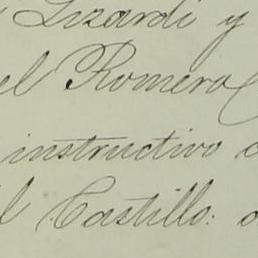 Lizardi y
el Romero
instructivo
Castillo: